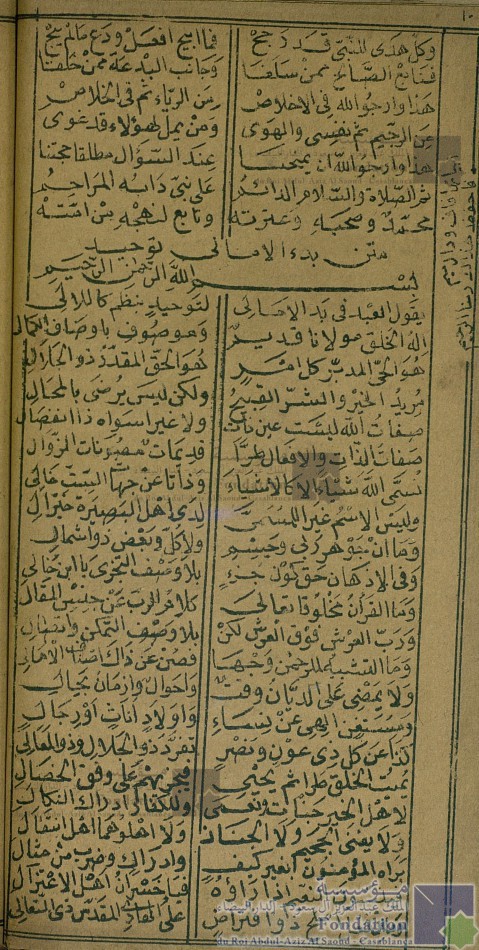 ١٠
وكل هدى للنبي قد رجح فما ابيح افعل ودع مالم يبح
فتابع الصالح ممن سلفا وجانب البدعة ممن خلفا
هذا وارجو الله في الاخلاص من الرياء ثم في الخلاص
من الرجيم ثم نفسي والهوى ومن يمل لهؤلاء قد غوى
هذا وارجو الله ان يمنحنا عند السؤال مطلقا حجتنا
ثم الصلاة والسلام الدائم على نبي دابه المراحم
محمد وصحبه وعترته وتابع لنهجه من امته
متن بدء الامالى توحيد
بسم الله الرحمن الرحيم
يقول العبد في بدء الامالي لتوحيد بنظم كاللالي
اله الخلق مولانا قديم وموصوف باوصاف الكمال
هو الحي المدبر كل امر هو الحق المقدر ذو الجلال
مريد الخير والشر القبيح ولكن ليس يرضى بالمحال
صفات الله ليست عين ذات ولا غيرا سواه ذا انفصال
صفات الذات والافعال طرا قديمات مصونات الزوال
نسمي الله شيئا لا كالاشياء وذاتا عن جهات الست خالي
وليس الاسم غير للمسمى لدى اهل البصيرة خير ال
وما ان جوهر ربي وجسم ولا كل وبعض ذو اشمال
وفي الاذهان حق كون جزء بلا وصف التجزي يا ابن خالي
وما القرأن مخلوقا تعالى كلام الرب عن جنس المقال
ورب العرش فوق العرش لكن بلا وصف التمكن واتصال
وما التشبيه للرحمن وجها فصن عن ذاك اصناف الاهالي
ولا يمضي على الديان وقت واحوال وازمان بحال
ومستغن الهي عن نساء واولاد اناث اورجال
كذا عن كل ذي عون ونصر تفرد ذو الجلال وذو المعالي
يميت الخلق طرا ثم يحيي فيجزيهم على وفق الخصال
لاهل الخير جنات ونعمى وللكفار ادراك النكال
ولا يفنى الجحيم ولا الجنان ولا اهلوهما اهل انتقال
يراه المؤمنون بغير كيف وادراك وضرب من مثال
اذا راوه فيا خسران اهل الاعتزال
ذو افتراض على الهادي المقدس ذي التعالي
مؤسسة
الملك عبد العزيز آل سعود - الدار البيضاء
Fondation
du Roi Abdul-Aziz Al Saoud - Casablanca